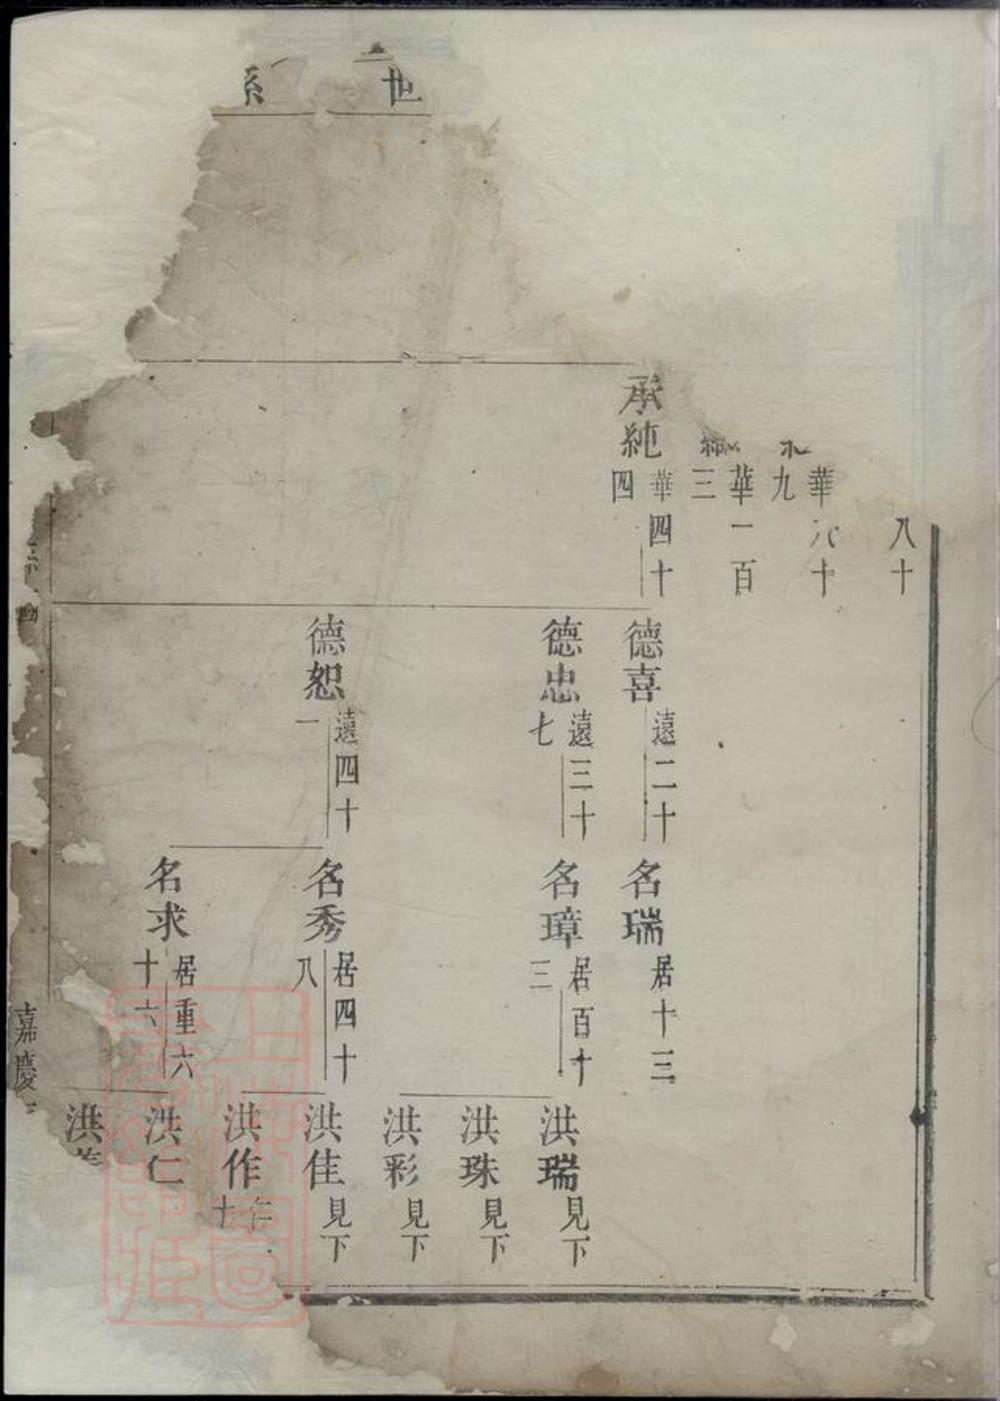 世系
八十
華 十九
華一百三
承純 華四十四
德喜 遠二十
德忠 遠三十七
德恕 遠四十一
名瑞 居十三
名璋 居百十三
名秀 居四十八
名求 居重六十六
洪瑞 見下
洪珠 見下
洪彩 見下
洪佳 見下
洪作
洪仁
洪
嘉慶